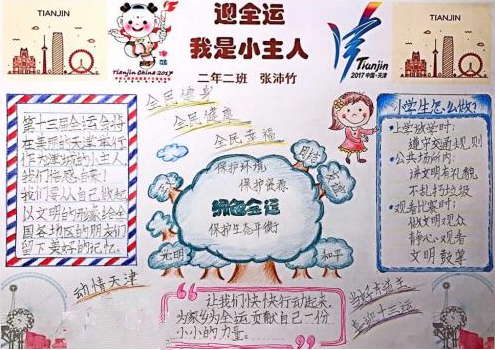 TIANJIN
迎全运
我是小主人
二年二班 张沛竹
Tianjin China 2017
Tianjin
2017中国·天津
TIANJIN
全民健身
全民健康
全民幸福
第十三届全运会将
在美丽的天津举行
作为津城的小主人
我们倍感自豪!
我们要从自己做起
以文明的形象给全
国各地区的朋友们
留下美好的记忆。
保护环境
保护资源
绿色全运
保护生态平衡
友谊
光明
和平
小学生怎么做?
·上学放学时:
遵守交通规则
·公共场所内:
讲文明有礼貌
不乱扔垃圾
·观看比赛时:
做文明观众
静心观看
文明鼓掌
动情天津
让我们快快行动起来,
为家乡为全运贡献自己一份
小小的力量。
当好东道主
喜迎十三运